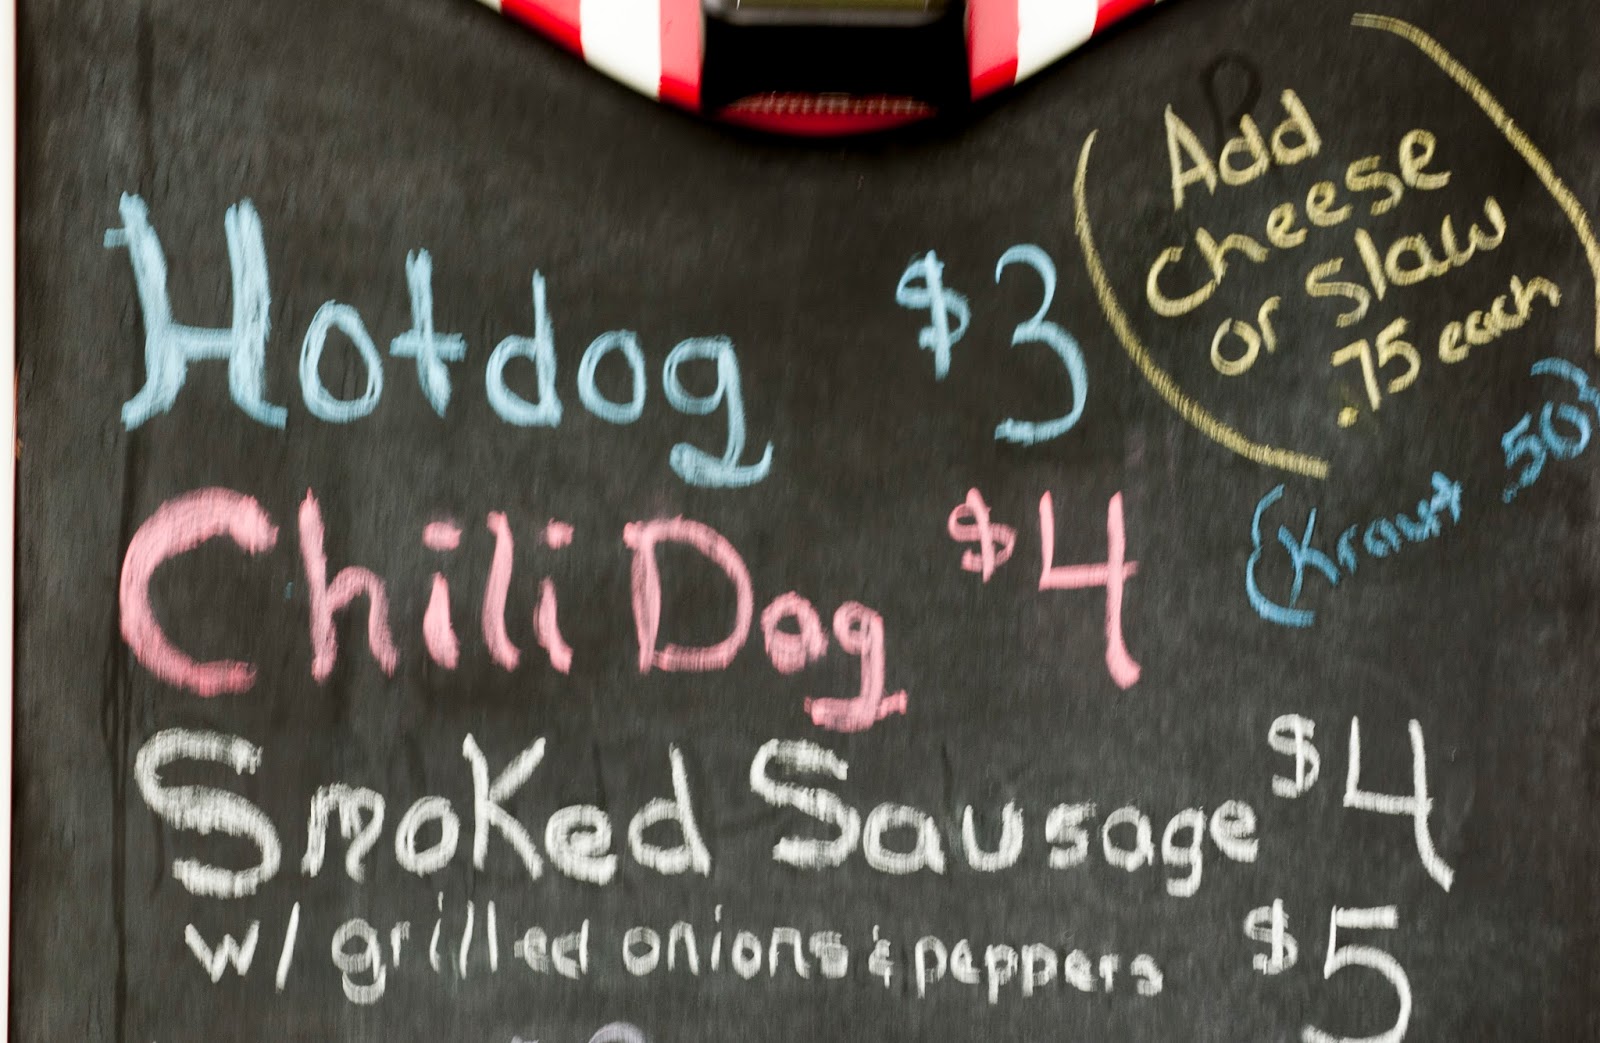 Hotdog $3
Chili Dog $4
Smoked Sausage $4
w/ grilled onions & peppers $5
Add
cheese
or Slaw
.75 each
(Kraut .50)